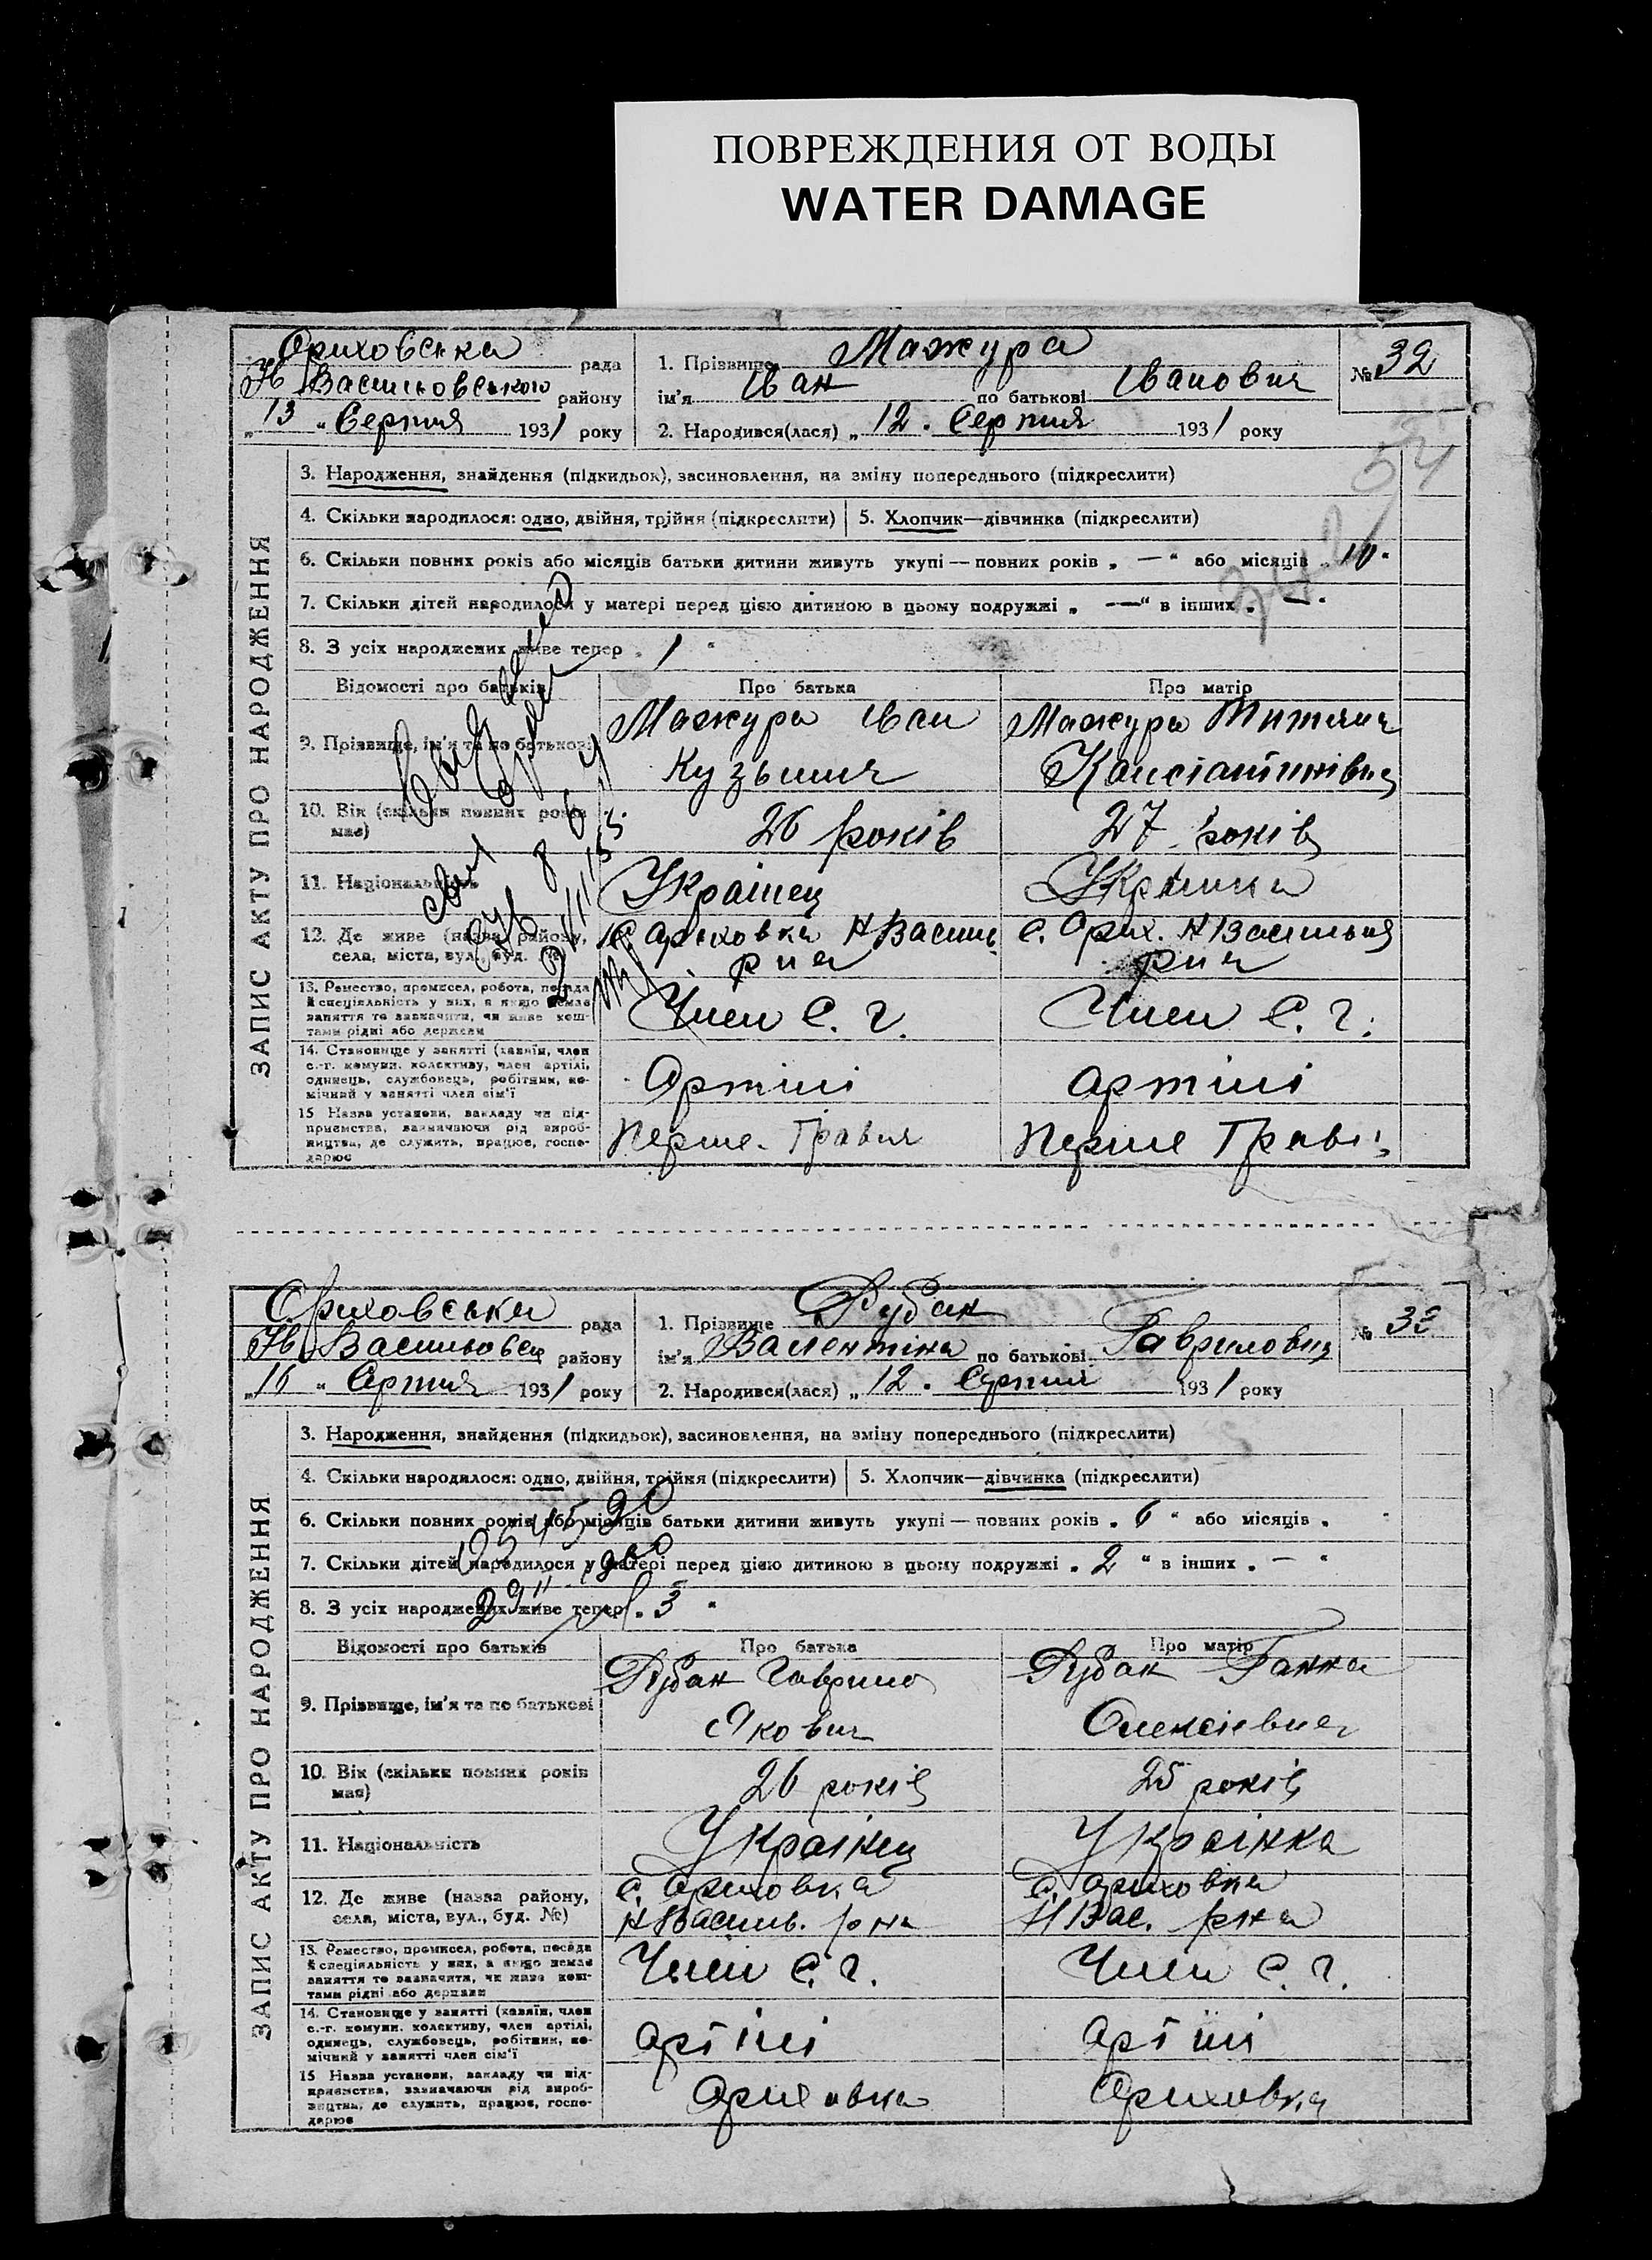 ПОВРЕЖДЕНИЯ ОТ ВОДЫ
WATER DAMAGE
Ориховська рада
Нв Васильовського району
„13“ Серпня 1931 року
1. Прізвище Мажура
ім'я Іван по батькові Іванович
2. Народився(лася) „12. Серпня 1931 року
№ 32
54
ЗАПИС АКТУ ПРО НАРОДЖЕННЯ
3. Народження, знайдення (підкидьок), засиновлення, на зміну попереднього (підкреслити)
4. Скільки народилося: одно, двійня, трійня (підкреслити) 5. Хлопчик—дівчинка (підкреслити)
6. Скільки повних років або місяців батьки дитини живуть укупі — повних років „ — “ або місяців „ 10 “
7. Скільки дітей народилося у матері перед цією дитиною в цьому подружжі „ — “ в інших „ — “
8. З усіх народжених живе тепер „ 1 “
Відомості про батьків Про батька Про матір
9. Прізвище, ім'я та по батькові
Мажура Іван Мажура Титяна
Кузьмич Констатинівна
10. Вік (скільки повних років має) 26 років 27 років
11. Національність Украінец Украинка
12. Де живе (назва району, села, міста, вул., буд. №)
с Ориховка Н Василь с. Орих. Н Васильов
рна рна
13. Ремество, промисел, робота, посада й спеціяльність у них, а якщо немає заняття то зазначити, чи живе коштами рідні або держави
Член С. г. Член С. г.
14. Становище у занятті (хазяїн, член с.-г. комуни, колективу, член артілі, одинець, службовець, робітник, помічний у занятті член сім'ї
Артілі артілі
15 Назва установи, закладу чи підприємства, зазначаючи рід виробництва, де служить, працює, господарює
Перше. Травня Перше Травн
Ориховська рада
Нв Васильовск району
„16“ Серпня 1931 року
1. Прізвище Рубак
ім'я Валентіна по батькові Гавриловна
2. Народився(лася) „12. Серпня 1931 року
№ 33
ЗАПИС АКТУ ПРО НАРОДЖЕННЯ
3. Народження, знайдення (підкидьок), засиновлення, на зміну попереднього (підкреслити)
4. Скільки народилося: одно, двійня, трійня (підкреслити) 5. Хлопчик—дівчинка (підкреслити)
6. Скільки повних років або місяців батьки дитини живуть укупі — повних років „ 6 “ або місяців „ “
7. Скільки дітей народилося у матері перед цією дитиною в цьому подружжі „ 2 “ в інших „ — “
8. З усіх народжених живе тепер „ 3 “
Відомості про батьків Про батька Про матір
9. Прізвище, ім'я та по батькові
Рубак Гаврило Рубак Ганна
Якович Олексіевна
10. Вік (скільки повних років має) 26 років 25 років
11. Національність Украінец Украінка
12. Де живе (назва району, села, міста, вул., буд. №)
с. Ориховка с. Ориховка
Н Василь. рна Н Вас. рна
13. Ремество, промисел, робота, посада й спеціяльність у них, а якщо немає заняття то зазначити, чи живе коштами рідні або держави
Член С. г. Член С. г.
14. Становище у занятті (хазяїн, член с.-г. комуни, колективу, член артілі, одинець, службовець, робітник, помічний у занятті член сім'ї
артілі артілі
15 Назва установи, закладу чи підприємства, зазначаючи рід виробництва, де служить, працює, господарює
Ориховка Ориховка